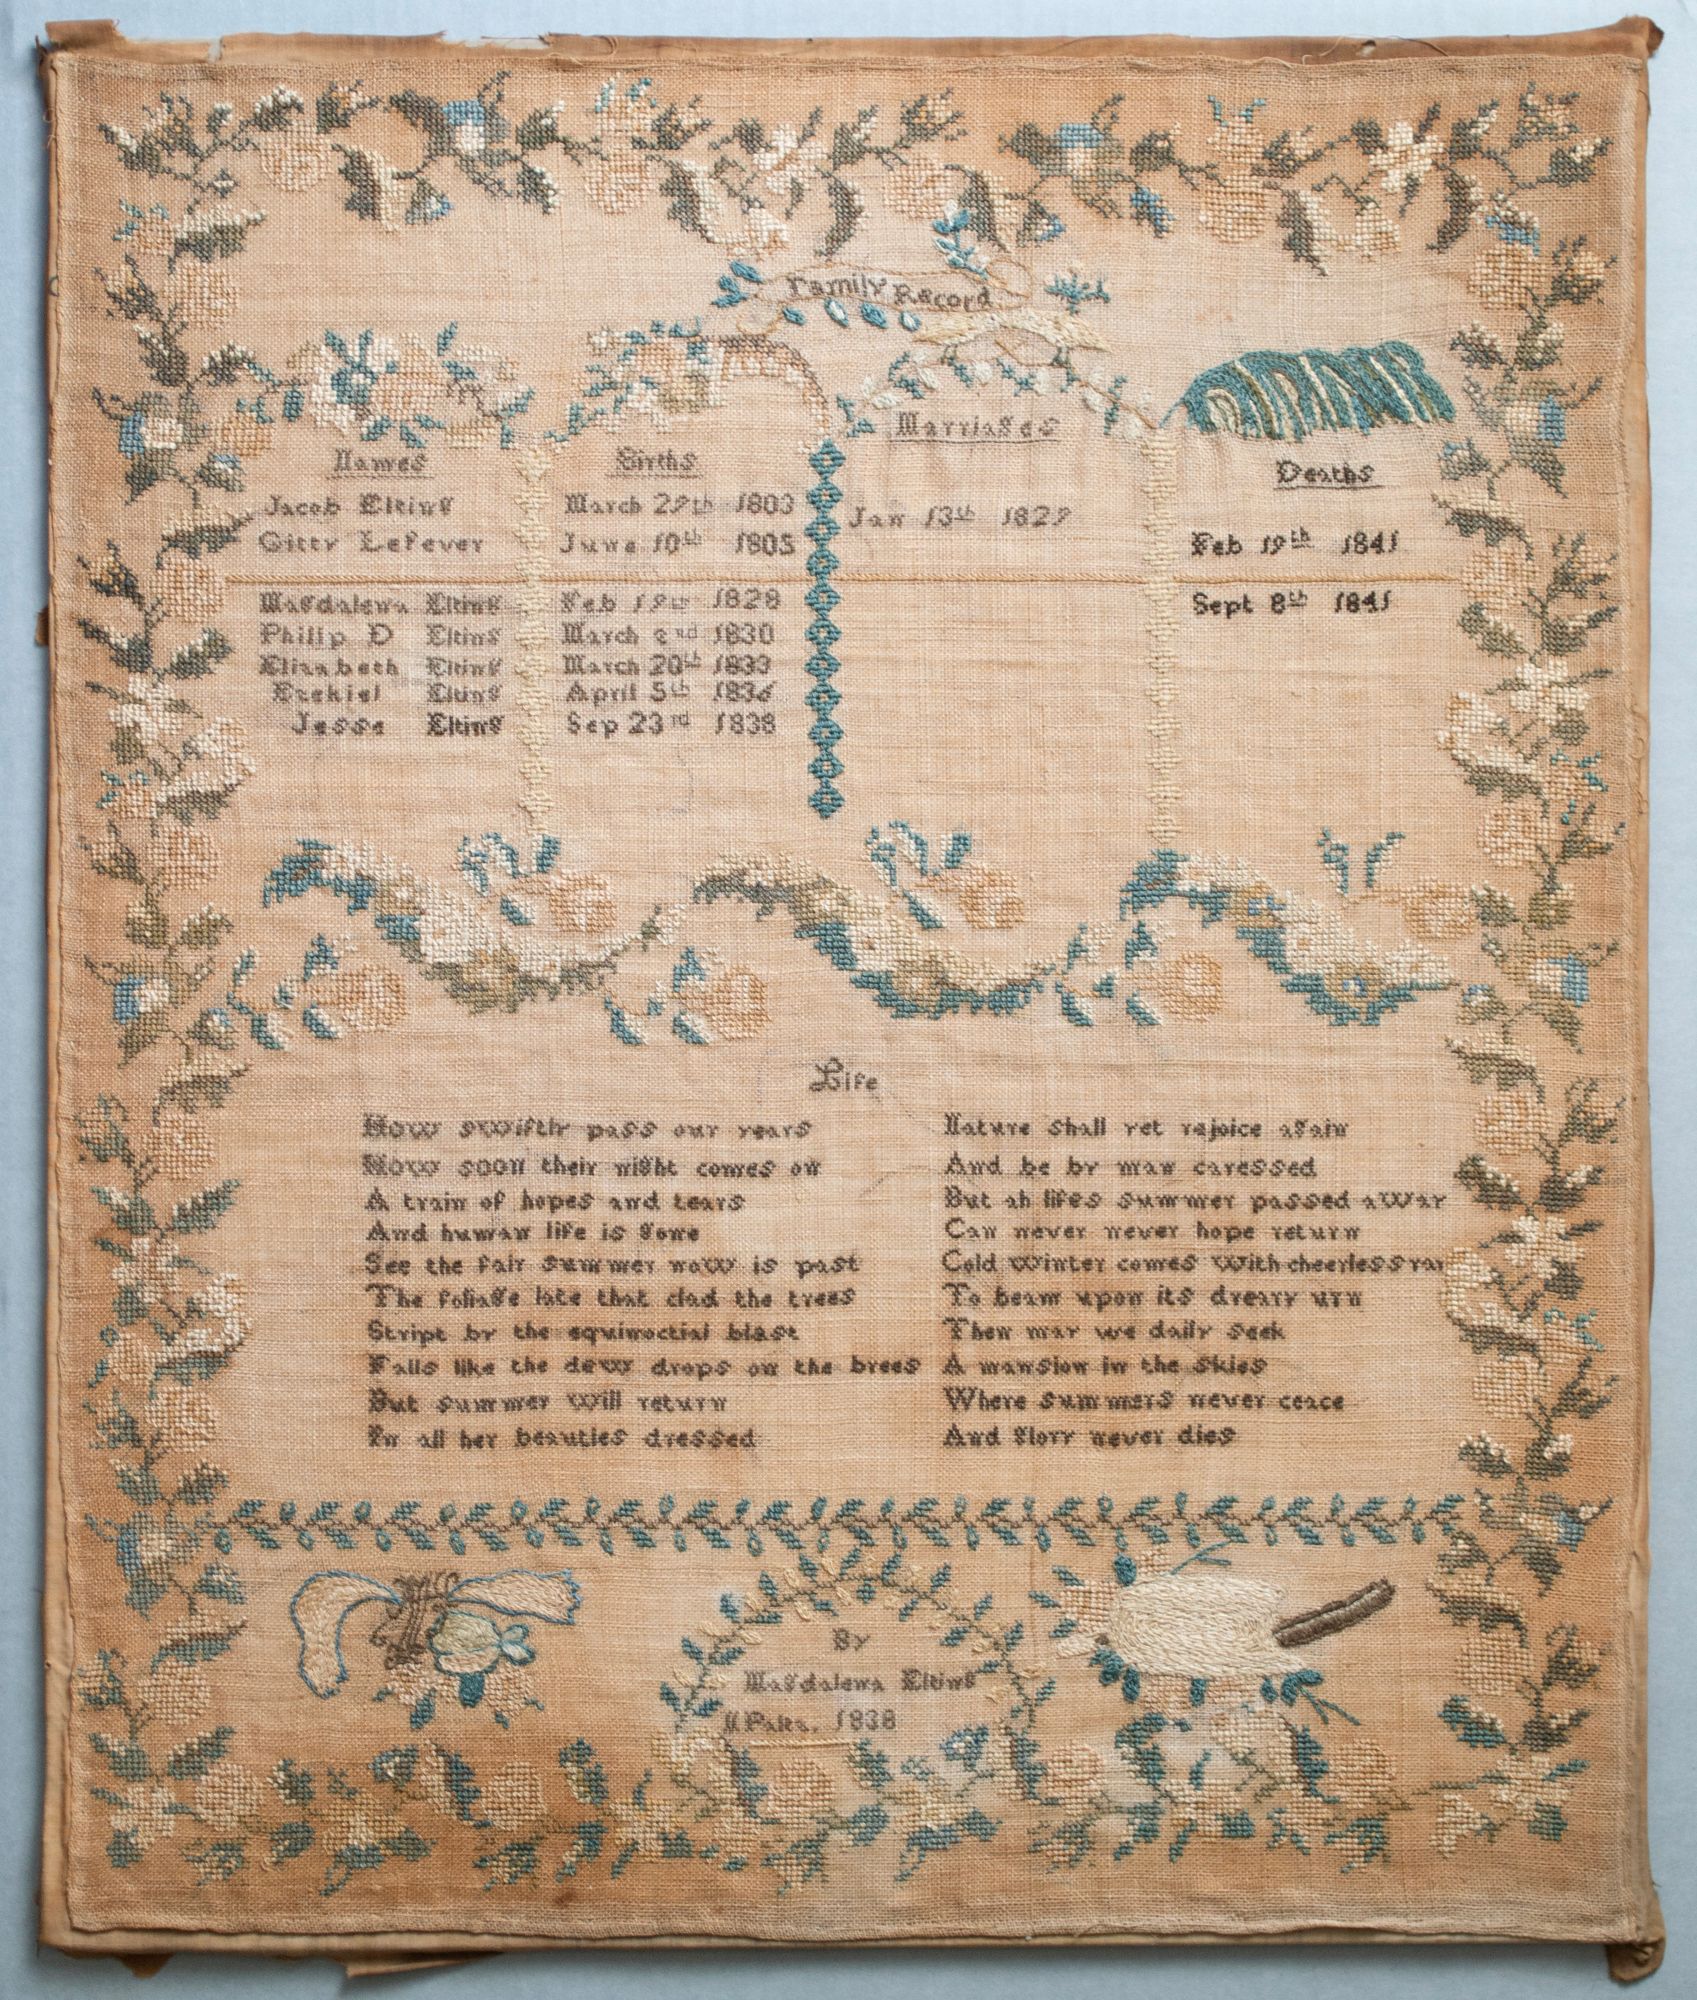 Family Record
Names Births Marriages Deaths
Jacob Elting March 29th 1803 Jan 13th 1829
Gitty LeFever June 10th 1805 Feb 19th 1841
Magdalena Elting Feb 19th 1828 Sept 8th 1841
Philip D Elting March 2nd 1830
Elizabeth Elting March 20th 1833
Ezekiel Elting April 5th 1836
Jesse Elting Sep 23rd 1838
Life
How swiftly pass our years
How soon their night comes on
A train of hopes and tears
And human life is gone
See the fair summer now is past
The foliage late that clad the trees
Stript by the equinoctial blast
Falls like the dew drops on the brees
But summer will return
In all her beauties dressed
Nature shall yet rejoice again
And be by man caressed
But ah lifes summer passed away
Can never never hope return
Cold winter comes with cheerless ray
To beam upon its dreary urn
Then may we daily seek
A mansion in the skies
Where summers never ceace
And glory never dies
By
Magdalena Elting
N Paltz. 1838